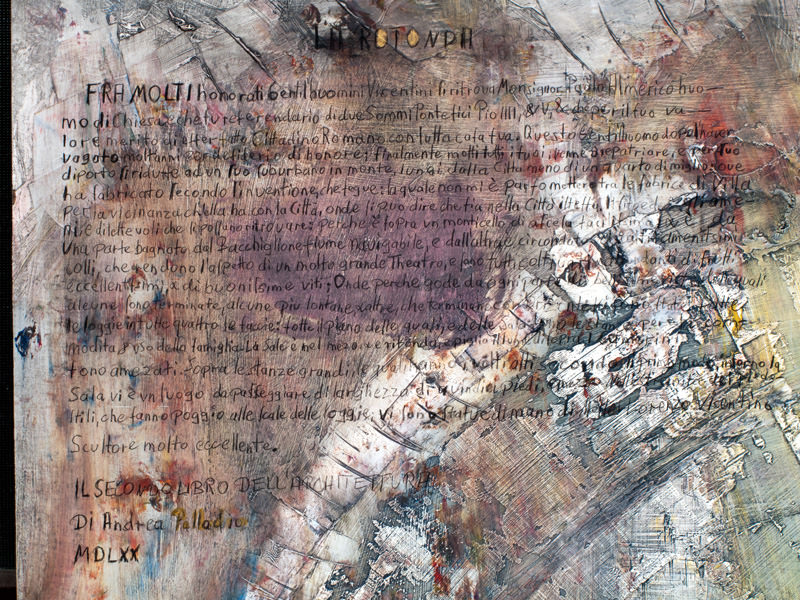 LA ROTONDA
FRA MOLTI honorati Gentilhuomini Vicentini si ritrova Monsignor Paolo Almerico huo—
mo di Chiesa, e che fu referendario di due Sommi Pontefici Pio IIII, & V, & che per il suo va—
lore merito di esser fatto Cittadino Romano con tutta casa sua. Questo Gentilhuomo dopo l'haver
vagato molt'anni per desiderio di honore; finalmente morti tutti i suoi; venne a repatriare, e per suo
diporto si ridusse ad un suo suburbano in monte, lungi dalla Città meno di un quarto di miglio: ove
ha fabricato secondo l'inventione, che segue: la quale non mi è parso mettere tra le fabriche di Villa
per la vicinanza ch'ella ha con la Città, onde si può dire che sia nella Città
ni, e dilettevoli che si possano ritrovare: perche è sopra un monticello di ascesa
una parte bagnato dal Bacchiglione fiume navigabile, e dall'altra è circondato
colli, che rendono l'aspetto di un molto grande Theatro, e sono tutti coltivati
eccellentissimi, & di buonissime viti; Onde perche gode da ogni parte
alcune sono terminate, alcune più lontane, & altre, che terminano
le loggie in tutte quattro le faccie: sotto il piano delle quali, e della Sala sono le stanze per la com—
modità, & uso della famiglia. La Sala è nel mezo, & è ritonda, e piglia il lume di sopra. I camerini
sono amezati. Sopra le stanze grandi, le quali hanno i volti alti secondo il primo modo, intorno la
Sala vi è un luogo da passeggiare di larghezza di quindici piedi, e mezo. Nelle
stili, che fanno poggio alle scale delle loggie, vi sono statue di mano di Lorenzo Vicentino
Scultore molto eccellente.
IL SECONDO LIBRO DELL'ARCHITETTURA
Di Andrea Palladio
MDLXX